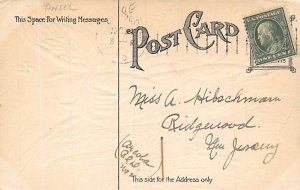 ANSEL
This Space for Writing Messages
POST CARD
Miss A. Hibschman
Ridgewood.
New Jersey
This side for the Address only